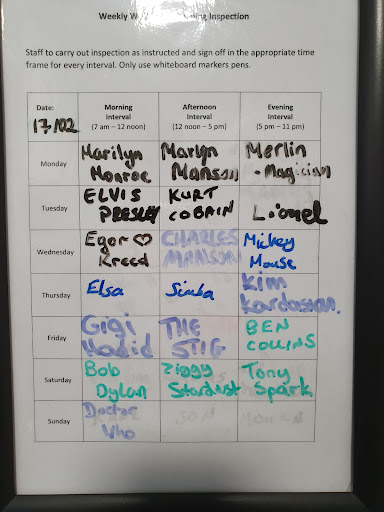 Weekly Inspection
Staff to carry out inspection as instructed and sign off in the appropriate time
frame for every interval. Only use whiteboard markers pens.
Date:
17/02
Morning
Interval
(7 am – 12 noon)
Afternoon
Interval
(12 noon – 5 pm)
Evening
Interval
(5 pm – 11 pm)
Monday
Marilyn
Monroe
Marlyn
Manson
Merlin
- Magician
Tuesday
ELVIS
PRESLEY
KURT
COBAIN
Lionel
Wednesday
Egor ♡
Kreed
CHARLES
MANSON
Mickey
Mouse
Thursday
Elsa
Simba
Kim
Kardashian.
Friday
Gigi
Hadid
THE
STIG
BEN
COLLINS
Saturday
Bob
Dylan
Ziggy
Stardust
Tony
Spark
Sunday
Doctor
Who